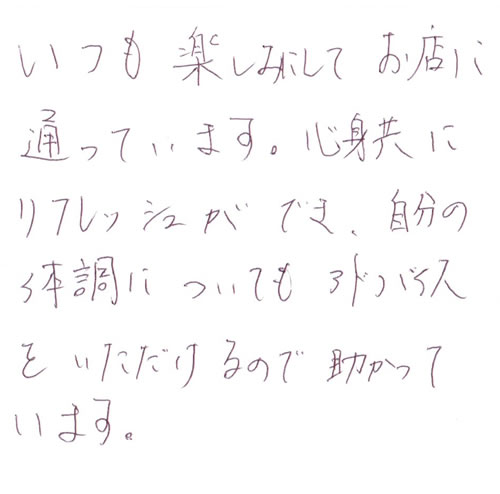 いつも楽しみにしてお店に
通っています。心身共に
リフレッシュができ、自分の
体調についてもアドバイス
をいただけるので助かって
います。